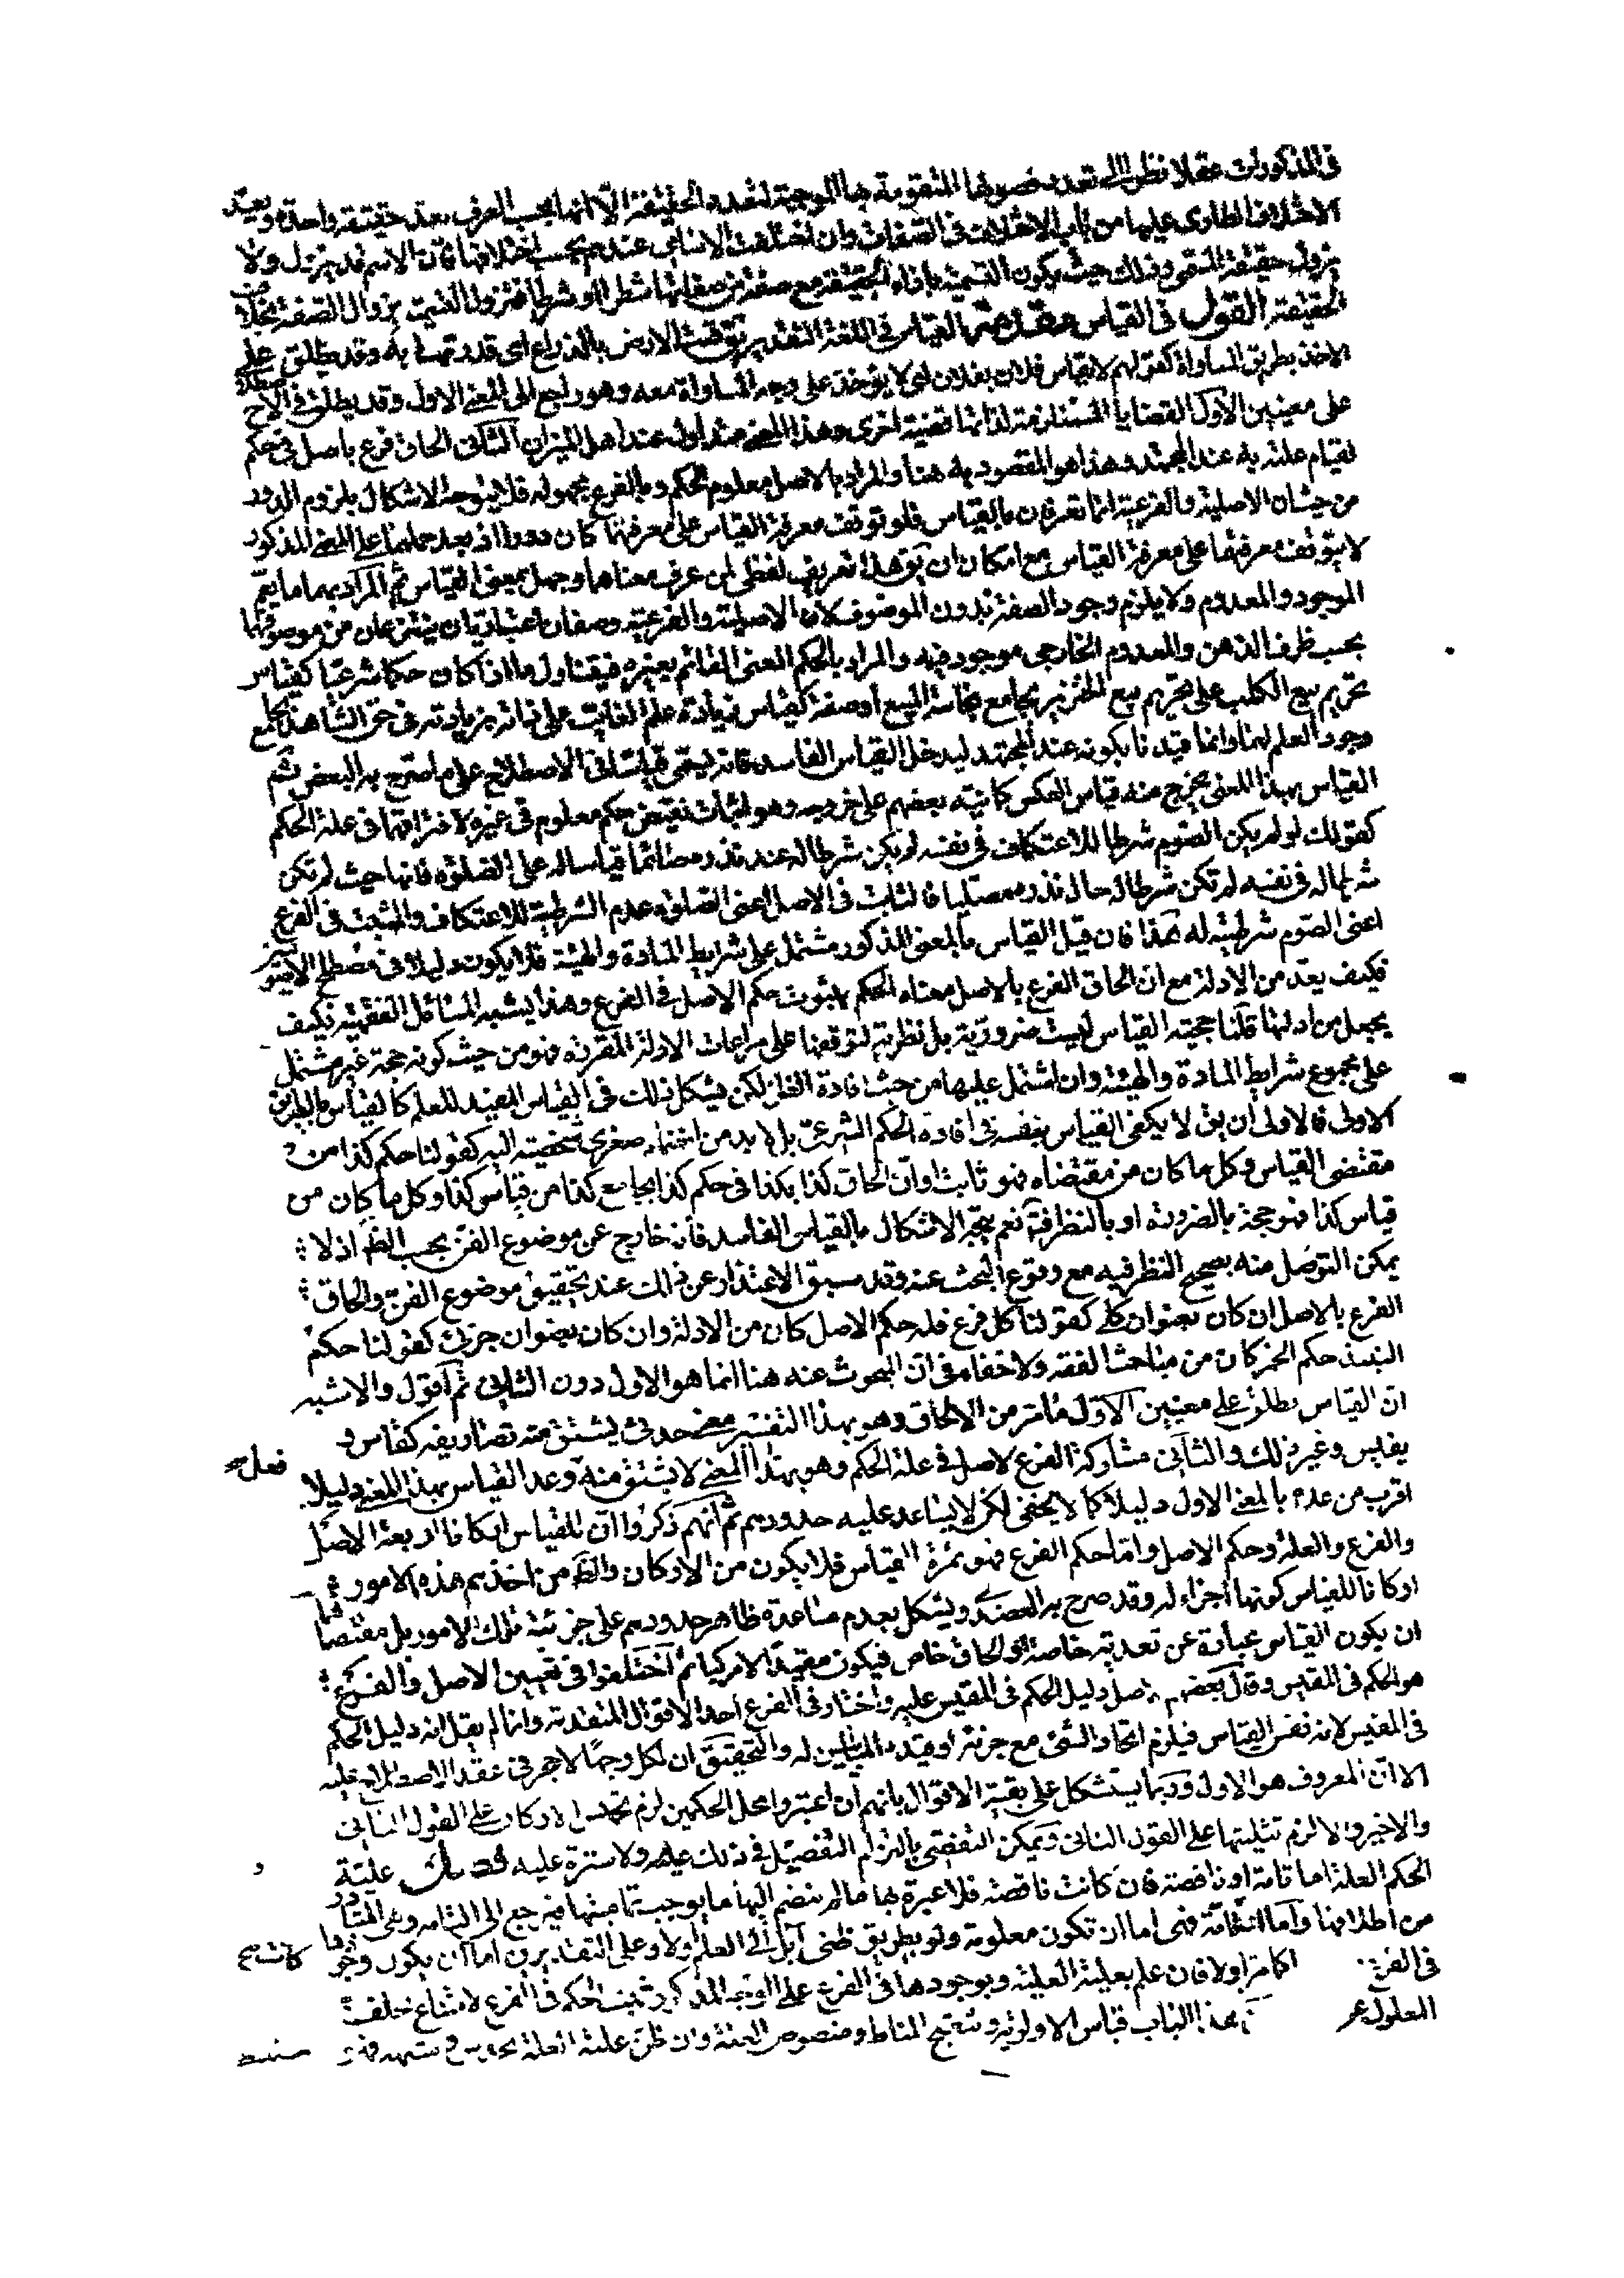 في المذكورات عقلا نظرا الى تعدد فصولها المتقومة بها الموجبة لتعدد الحقيقة الا انها بحسب العرف يعد حقيقة واحدة ويعد
الاختلاف الطارى عليها من باب الاختلاف في الصفات وان اختلفت الاسامى عندهم بحسب اختلافها فان الاسم قد يزول ولا
يزول حقيقة المسمى وذلك حيث يكون التسمية بازاء الحقيقة مع صفة من صفاتها شطرا او شرطا فتزول التسمية بزوال الصفة بخلاف
الحقيقة القول في القياس مقدمة القياس في اللغة التقدير يق قست الارض بالذراع اى قدرتها به وقد يطلق على
الاخذ بطريق المساواة كقولهم لا يقاس فلان بفلان اى لا يؤخذ على وجه المساواة معه وهو راجع الى المعنى الاول وقد يطلق في الاصطلاح
على معنيين الاول القضايا المستلزمة لذاتها قضية اخرى وهذا المعنى متداول عند اهل الميزان الثانى الحاق فرع باصل في حكم
لقيام علته به عند المجتهد وهذا هو المقصود به هنا والمراد بالاصل معلوم الحكم وبالفرع مجهوله فلا يتوجه الاشكال بلزوم الدور
من حيث ان الاصلية والفرعية انما تعرفان بالقياس فلو توقف معرفة القياس على معرفتهما كان دورا اذ بعد حملهما على المعنى المذكور
لا يتوقف معرفتهما على معرفة القياس مع امكان ان يق هذا تعريف لفظى لمن عرف معناهما وجهل معنى القياس ثم المراد بهما ما يعم
الموجود والمعدوم ولا يلزم وجود الصفة بدون الموصوف لان الاصلية والفرعية وصفان اعتباريان ينتزعان من موصوفهما
بحسب ظرف الذهن والمعدوم الخارجى موجود فيه والمراد بالحكم المعنى القائم بغيره فيتناول ما اذا كان حكما شرعيا كقياس
تحريم بيع الكلب على تحريم بيع الخنزير بجامع نجاسة المبيع او صفة كقياس زيادة علم الغائب على ذاته بزيادته في حق الشاهد بجامع
وجود العلم لهما وانما قيدنا بكونه عند المجتهد ليدخل القياس الفاسد فانه يسمى قياسا في الاصطلاح على ما صرح به البعض ثم
القياس بهذا المعنى يخرج منه قياس العكس كما نبه بعضهم على خروجه وهو اثبات نقيض حكم معلوم في غيره لافتراقهما في علة الحكم
كقولك لو لم يكن الصوم شرطا للاعتكاف في نفسه لم يكن شرطا له عند نذره صائما قياسا له على الصلوة فانها حيث لم تكن
شرطا له في نفسه لم تكن شرطا له حال نذره مصليا فالثابت في الاصل اعنى الصلوة عدم الشرطية للاعتكاف والمثبت في الفرع
اعنى الصوم شرطيته له هذا فان قيل القياس بالمعنى المذكور مشتمل على شرايط المادة والهيئة فلا يكون دليلا في مصطلح الاصوليين
فكيف يعد من الادلة مع ان الحاق الفرع بالاصل معناه الحكم بثبوت حكم الاصل في الفرع وهذا يشبه المسائل الفقهية فكيف
يجعل من ادلتها قلنا حجية القياس ليست ضرورية بل نظرية لتوقفها على مراعات الادلة المقررة فهو من حيث كونه حجة غير مشتمل
على مجموع شرايط المادة والهيئة وان اشتمل عليها من حيث افادة الظن لكن يشكل ذلك في القياس المفيد للعلم كالقياس بالطريق
الاولى فالاولى ان يق لا يكفى القياس بنفسه في افادة الحكم الشرعى بل لا بد من انضمام صغرى شخصية اليه كقولنا حكم كذا من
مقتضى القياس وكل ما كان من مقتضاه فهو ثابت او ان الحاق كذا بكذا في حكم كذا بجامع كذا من قياس كذا وكل ما كان من
قياس كذا فهو حجة بالضرورة او بالنظر فيه نعم يتجه الاشكال بالقياس الفاسد فانه خارج عن موضوع الفن بحسب الظ اذ لا
يمكن التوصل منه بصحيح النظر فيه مع وقوع البحث عنه وقد سبق الاعتذار عن ذلك عند تحقيق موضوع الفن والحاق
الفرع بالاصل ان كان بعنوان كلى كقولنا كل فرع فله حكم الاصل كان من الادلة وان كان بعنوان جزئى كقولنا حكم
النبيذ حكم الخمر كان من مباحث الفقه ولا خفاء في ان المبحوث عنه هنا انما هو الاول دون الثانى ثم اقول والاشبه
ان القياس يطلق على معنيين الاول ما مر من الالحاق وهو بهذا التفسير معنى حدثى يشتق منه تصاريفه كقاس و
يقيس وغير ذلك والثانى مشاركة الفرع لاصل في علة الحكم وهو بهذا المعنى لا يشتق منه فعل وعد القياس بهذا المعنى دليلا
اقرب من عده بالمعنى الاول دليلا كما لا يخفى لكن لا يساعد عليه حدودهم ثم انهم ذكروا ان للقياس اركانا اربعة الاصل
والفرع والعلة وحكم الاصل واما حكم الفرع فهو ثمرة القياس فلا يكون من الاركان والظ من اخذهم هذه الامور
اركانا للقياس كونها اجزاء له وقد صرح به العضدى ويشكل بعدم مساعدة ظاهر حدودهم على جزئية تلك الامور بل مقتضاها
ان يكون القياس عبارة عن تعدية خاصة او الحاق خاص فيكون مقيدا لا مركبا ثم اختلفوا في تعيين الاصل والفرع
هو الحكم في المقيس وقال بعضهم اصل دليل الحكم في المقيس عليه واختار في الفرع احد الاقوال المتقدمة وانما لم يقل انه دليل الحكم
في المقيس لانه نفس القياس فيلزم اتحاد الشئ مع جزئه او قيده المباين له والتحقيق ان لكل وجها لا حجر في عقد الاصطلاح عليه
الا ان المعروف هو الاول وربما يستشكل على بقية الاقوال بانهم ان اعتبروا محل الحكمين لزم تخميس الاركان على القول الثانى
والاخير والا لزم تثليثها على القول الثانى ويمكن التفصى بالتزام التفصيل في ذلك عليه ولا سترة عليه فصل علية
الحكم العلة اما تامة او ناقصة فان كانت ناقصة فلا عبرة بها ما لم ينضم اليها ما يوجب تماميتها فيرجع الى التامة وهى المتبادر
من اطلاقها واما التامة فهى اما ان تكون معلومة ولو بطريق ظنى آيل الى العلم او لا وعلى التقديرين اما ان يكون وجودها
في الفرع كما مر اولا فان علم بعلية العلية وبوجودها في الفرع على الوجه المذكور ثبت الحكم في الفرع لامتناع تخلف
المعلول عن هذا الباب قياس الاولوية وتنقيح المناط ومنصوص العلة وان ظن علية العلة